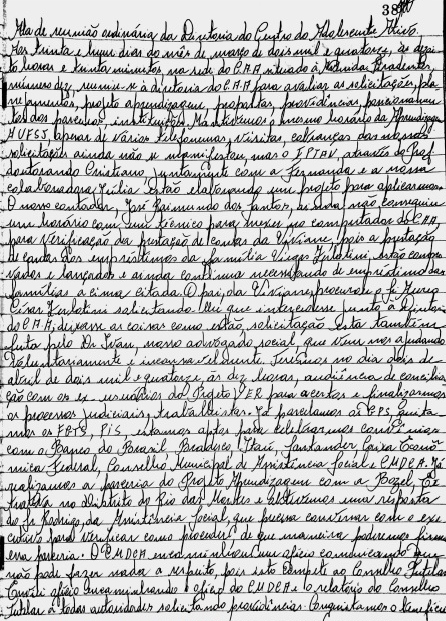 38
Ata de reunião ordinária da Diretoria do Centro do Adolescente Ativo.
Aos trinta e um dias do mês de março de dois mil e quatorze, às dezoi-
to horas e trinta minutos, na sede do C.A.A situado à Avenida Tiradentes,
número dez, reuniu-se a diretoria do C.A.A para avaliar as solicitações, pla-
nejamentos, projeto aprendizagem, propostas, providências,
tos dos parceiros, instituições. Mantivemos o mesmo horário da Aprendizagem.
A UFSJ, apesar de vários telefonemas, visitas, cobranças das nossas
solicitações ainda não se manifestou, mas o IPTAN, através do Prof.
doutorando Cristiano, juntamente com a Fernanda e a nossa
colaboradora Júlia estão elaborando um projeto para aplicarmos.
O nosso contador, José Raimundo dos Santos, ainda não conseguiu
um horário com um técnico para mexer no computador do C.A.A,
para verificação da prestação de contas da Viviane, pois a prestação
de contas dos empréstimos da família Viegas estão compro-
vados e lançados e ainda continua necessitando de empréstimo das
famílias acima citada. O pai da Viviane procurou o Sr.
César solicitando-lhe que intercedesse junto à Diretoria
do C.A.A, deixasse as coisas como estão, solicitação esta também
feita pelo Dr. Ivan, nosso advogado social, que vem nos ajudando
voluntariamente e incansavelmente. Teremos no dia dois de
abril de dois mil e quatorze às dez horas, audiência de concilia-
ção com os ex usuários do Projeto VER para acertos e finalizarmos
os processos judiciais, trabalhistas. Já parcelamos os GPS, quita-
mos os FGTS, PIS, estamos aptos para celebrarmos convênios
com o Banco do Brasil, Bradesco, Itaú, Santander, Caixa Econô-
mica Federal, Conselho Municipal de Assistência Social e CMDCA. Já
realizamos a parceria do Projeto Aprendizagem com a Bozel, Ex-
trativa no Distrito do Rio das Mortes e obtivemos uma resposta
do Sr. Rodrigo da Assistência Social, que precisa conversar com o exe-
cutivo para verificar como proceder, de que maneira poderemos firmar
essa parceria. O CMDCA encaminhou um ofício comunicando que
não pode fazer nada a respeito, pois isto compete ao Conselho Tutelar.
Enviei ofício encaminhando o ofício do CMDCA e o relatório do Conselho
Tutelar a todas autoridades solicitando providências. Conquistamos o benefício